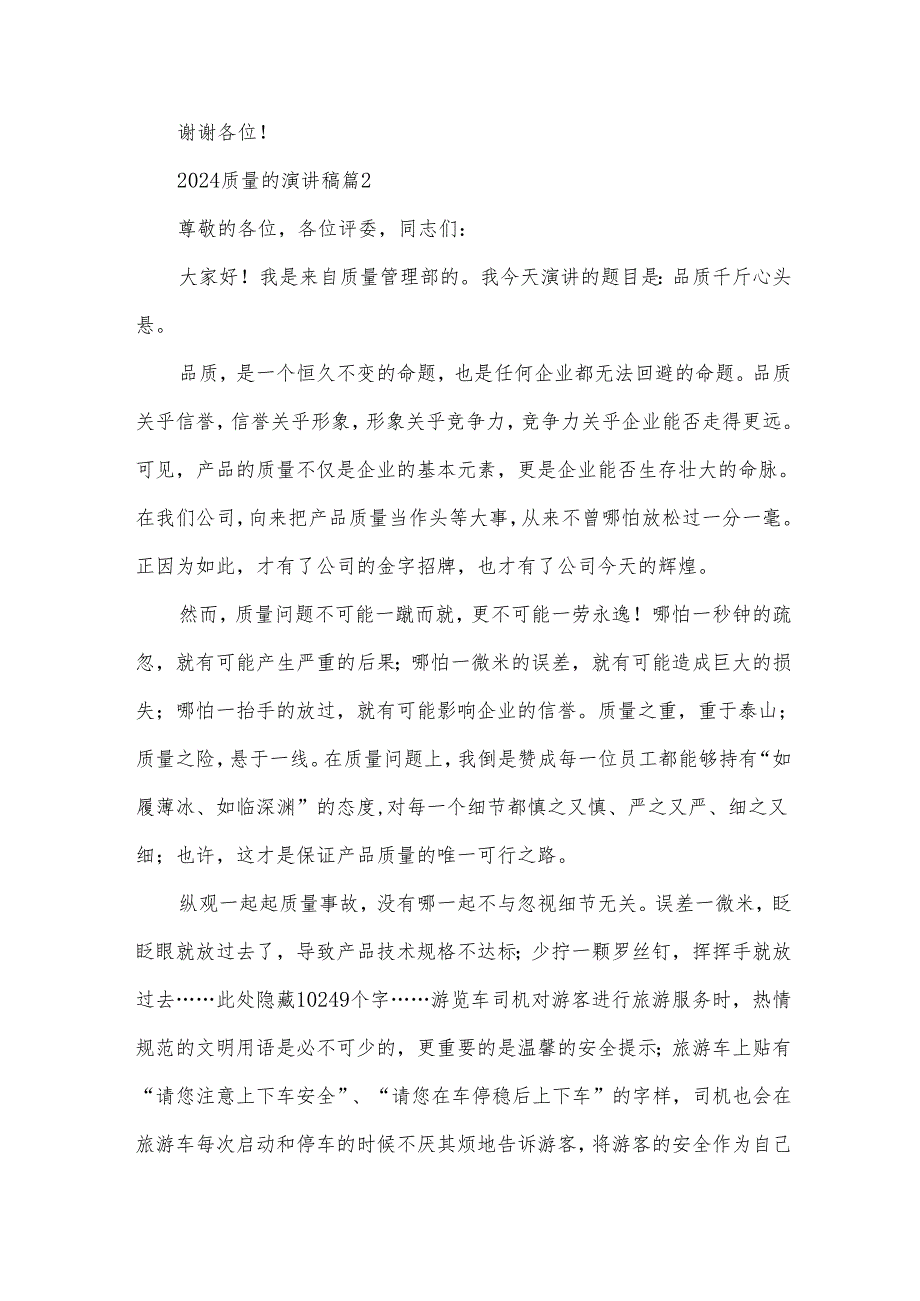 谢谢各位！
2024质量的演讲稿篇2
尊敬的各位，各位评委，同志们：
大家好！我是来自质量管理部的。我今天演讲的题目是：品质千斤心头
悬。
品质，是一个恒久不变的命题，也是任何企业都无法回避的命题。品质
关乎信誉，信誉关乎形象，形象关乎竞争力，竞争力关乎企业能否走得更远。
可见，产品的质量不仅是企业的基本元素，更是企业能否生存壮大的命脉。
在我们公司，向来把产品质量当作头等大事，从来不曾哪怕放松过一分一毫。
正因为如此，才有了公司的金字招牌，也才有了公司今天的辉煌。
然而，质量问题不可能一蹴而就，更不可能一劳永逸！哪怕一秒钟的疏
忽，就有可能产生严重的后果；哪怕一微米的误差，就有可能造成巨大的损
失；哪怕一抬手的放过，就有可能影响企业的信誉。质量之重，重于泰山；
质量之险，悬于一线。在质量问题上，我倒是赞成每一位员工都能够持有“如
履薄冰、如临深渊”的态度,对每一个细节都慎之又慎、严之又严、细之又
细；也许，这才是保证产品质量的唯一可行之路。
纵观一起起质量事故，没有哪一起不与忽视细节无关。误差一微米，眨
眨眼就放过去了，导致产品技术规格不达标；少拧一颗罗丝钉，挥挥手就放
过去……此处隐藏10249个字……游览车司机对游客进行旅游服务时，热情
规范的文明用语是必不可少的，更重要的是温馨的安全提示；旅游车上贴有
“请您注意上下车安全”、“请您在车停稳后上下车”的字样，司机也会在
旅游车每次启动和停车的时候不厌其烦地告诉游客，将游客的安全作为自己